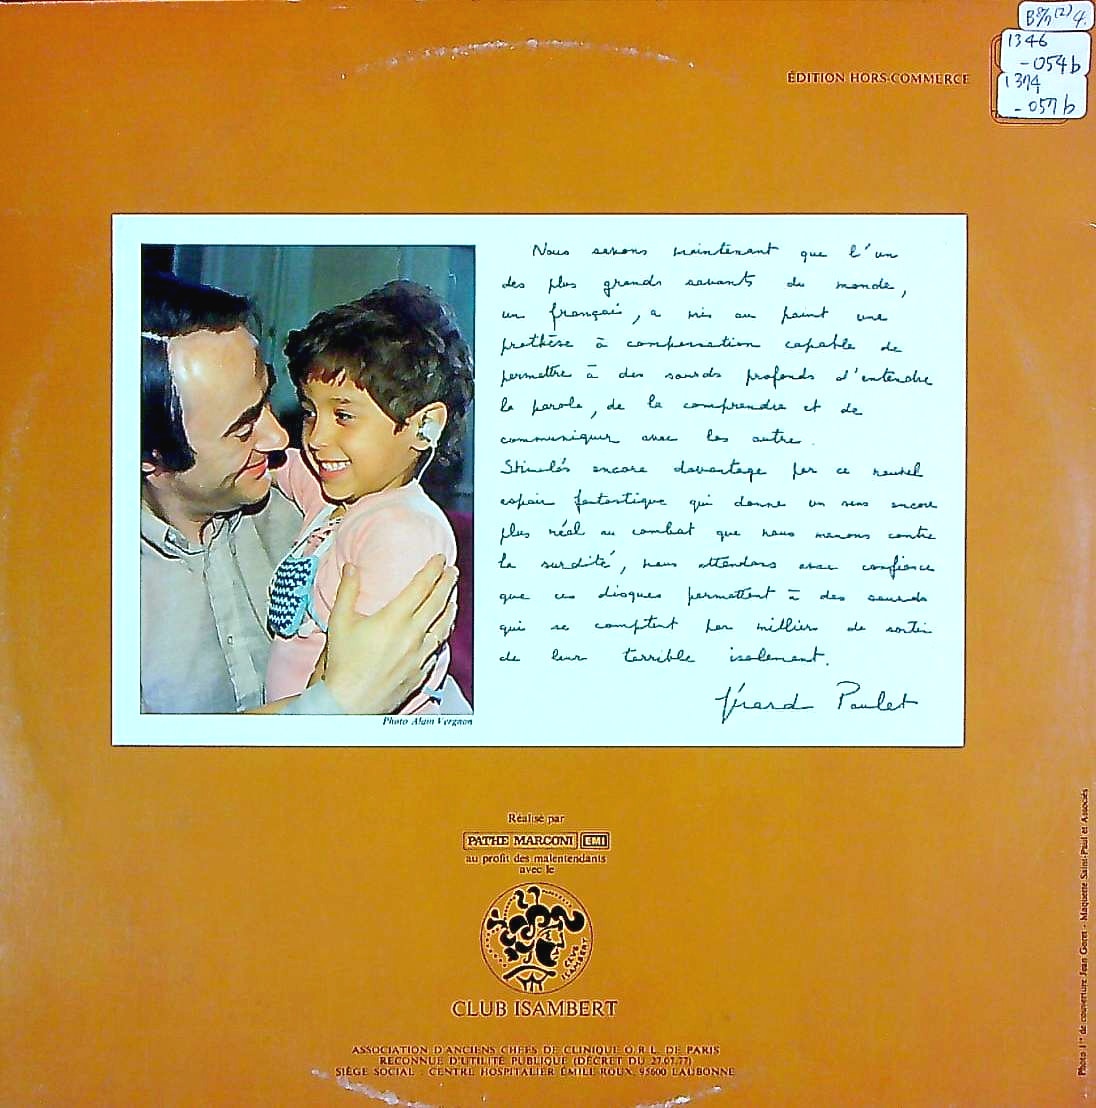 B8/7(2)4.
1346
-054b
1374
-057b
ÉDITION HORS-COMMERCE
Nous savons maintenant que l'un
des plus grands savants du monde,
un français, a mis au point une
prothèse à compensation capable de
permettre à des sourds profonds d'entendre
la parole, de la comprendre et de
communiquer avec les autres.
Stimulés encore davantage par ce nouvel
espoir fantastique qui donne un sens encore
plus réel au combat que nous menons contre
la surdité, nous attendons avec confiance
que ces disques permettent à des sourds
qui se comptent par milliers de sortir
de leur terrible isolement.
Gérard Poulet
Photo Alain Vergnon
Réalisé par
PATHE MARCONI EMI
au profit des malentendants
avec le
CLUB ISAMBERT
CLUB ISAMBERT
ASSOCIATION D'ANCIENS CHEFS DE CLINIQUE O.R.L. DE PARIS
RECONNUE D'UTILITÉ PUBLIQUE (DÉCRET DU 27.07.77)
SIÈGE SOCIAL : CENTRE HOSPITALIER ÉMILE ROUX, 95600 EAUBONNE
Photo 1re de couverture Jean Goret - Maquette Saint-Paul et Associés